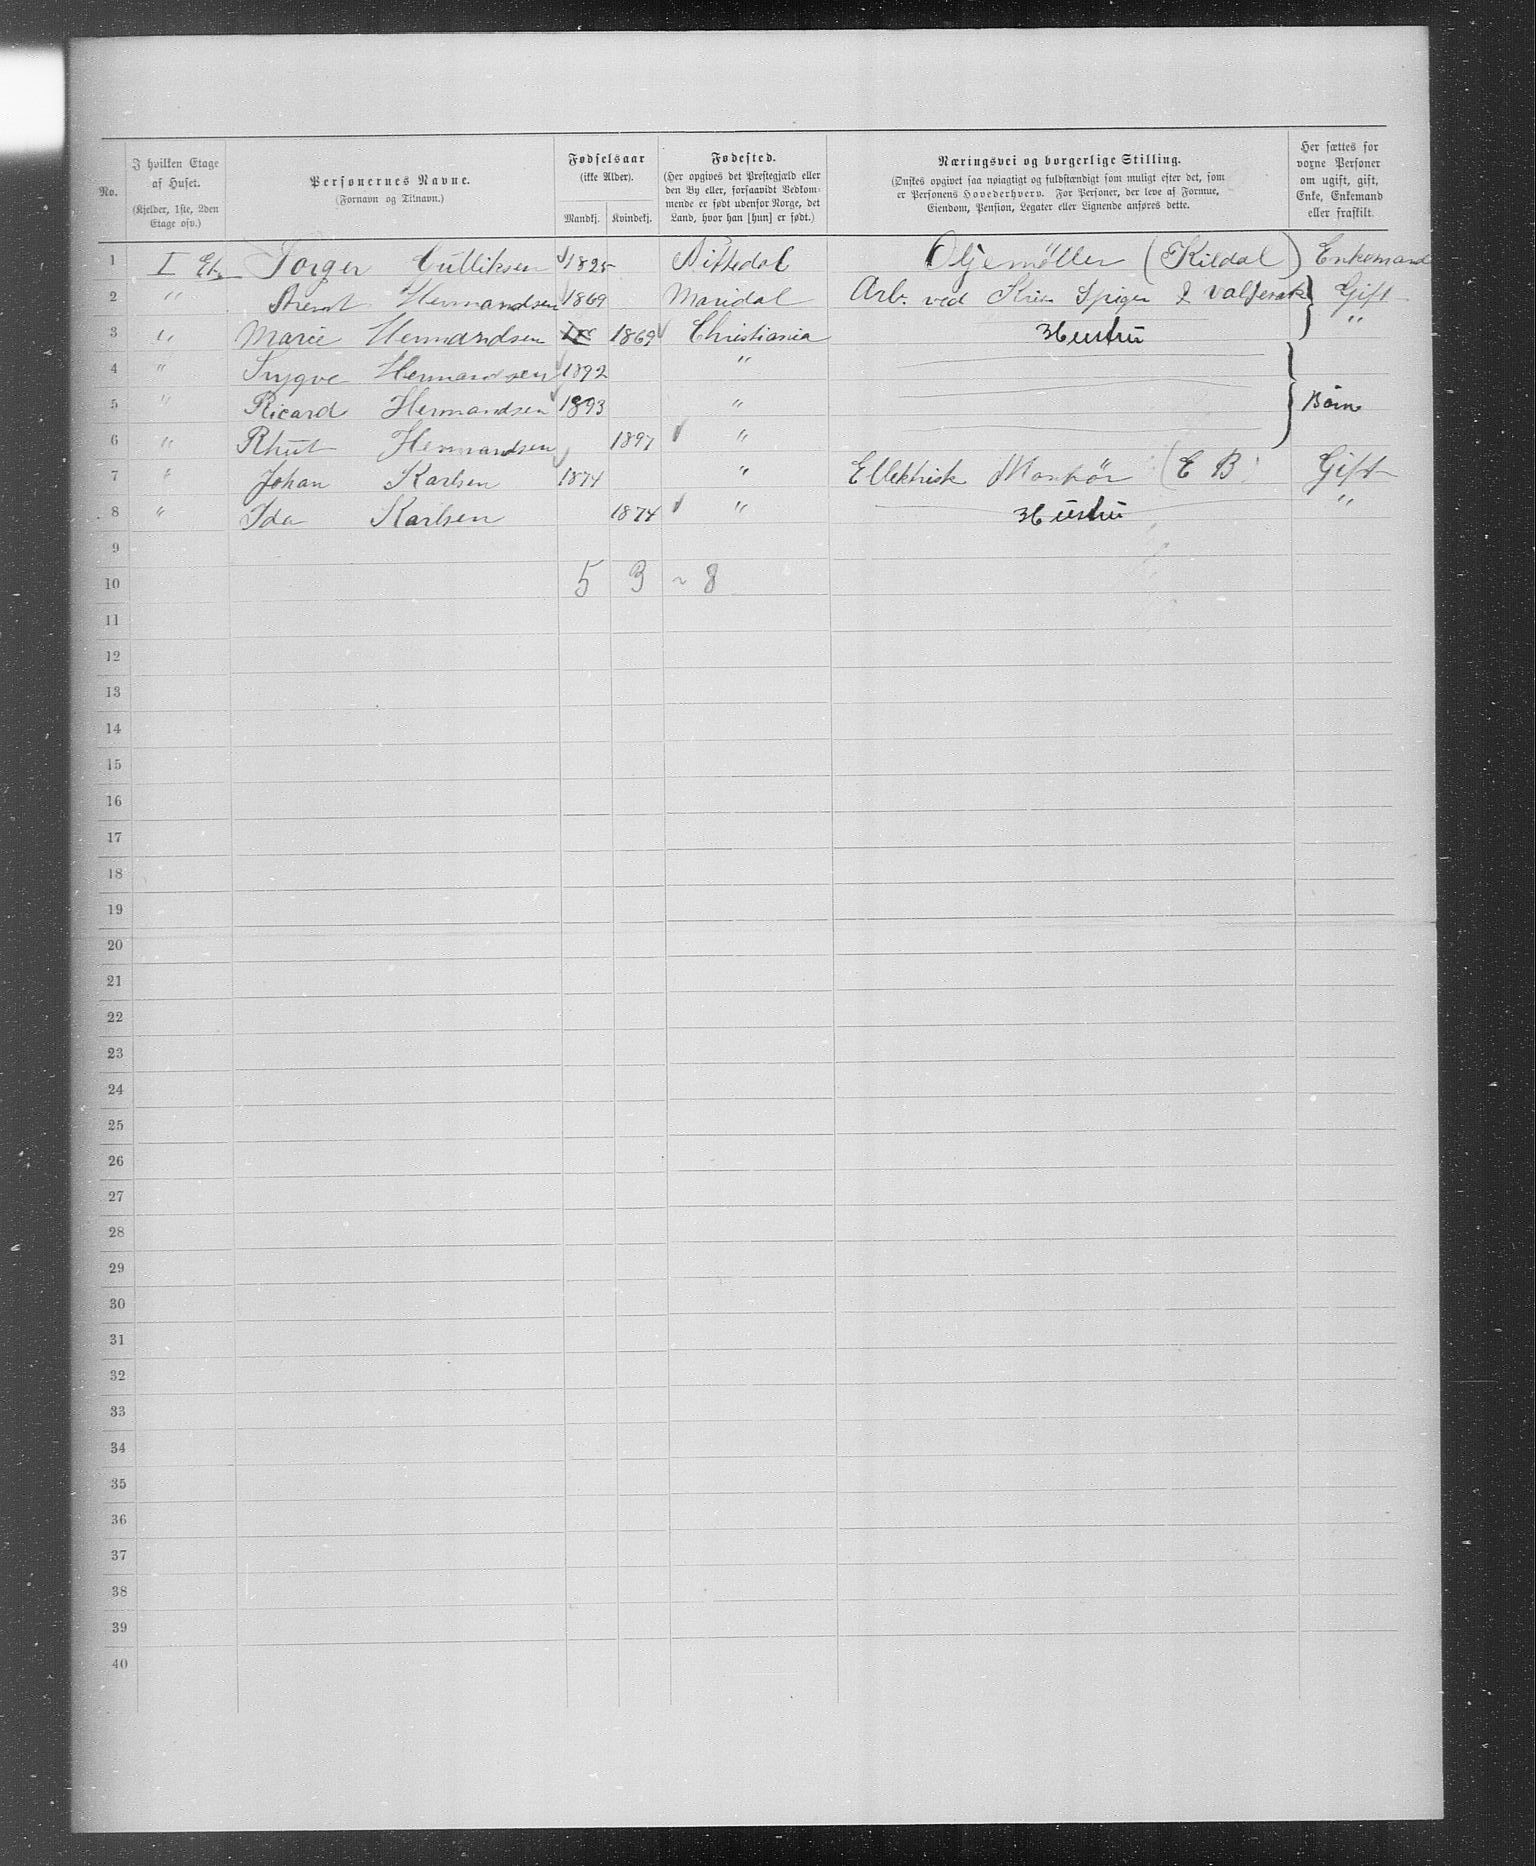 No.
I hvilken Etage af Huset.
(Kjelder, 1ste, 2den Etage osv.)
Personernes Navne.
(Fornavn og Tilnavn.)
Fødselsaar
(ikke Alder).
Mandkj. Kvindekj.
Fødested.
(Her opgives det Prestegjæld eller
den By eller, forsaavidt Vedkom-
mende er født udenfor Norge, det
Land, hvor han [hun] er født.)
Næringsvei og borgerlige Stilling.
(Ønskes opgivet saa nøiagtigt og fuldstændigt som muligt efter det, som
er Personens Hovederhverv. For Personer, der leve af Formue,
Eiendom, Pension, Legater eller Lignende anføres dette.
Her sættes for
voxne Personer
om ugift, gift,
Enke, Enkemand
eller fraskilt.
1 I Et. Torger Gulliksen 1825 Nittedal Oljemøller (Kildal) Enkemand
2 " Arent Hermandsen 1869 Maridal Arb. ved Kria Spiger & Valseværk Gift
3 " Marie Hermandsen 1869 Christiania Hustru "
4 " Trygve Hermandsen 1892 "
5 " Ricard Hermandsen 1893 " Børn
6 " Rhut Hermandsen 1897 "
7 " Johan Karlsen 1874 " Ellektrisk Montør (E B) Gift
8 " Ida Karlsen 1874 " Hustru "
9
10 5 3 ~ 8
11
12
13
14
15
16
17
18
19
20
21
22
23
24
25
26
27
28
29
30
31
32
33
34
35
36
37
38
39
40